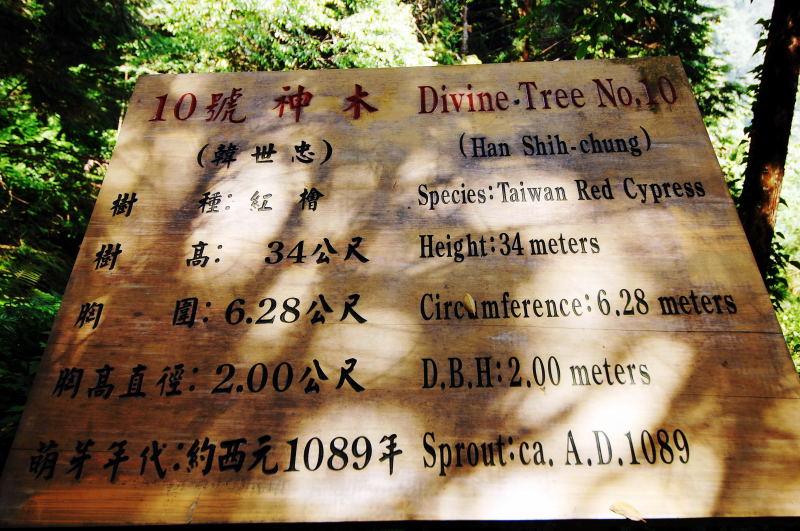 10號 神木 Divine Tree No.10
(韓世忠) (Han Shih-chung)
樹種:紅檜 Species:Taiwan Red Cypress
樹高: 34公尺 Height:34 meters
胸圍:6.28公尺 Circumference:6.28 meters
胸高直徑:2.00公尺 D.B.H:2.00 meters
萌芽年代:約西元1089年 Sprout:ca. A.D.1089